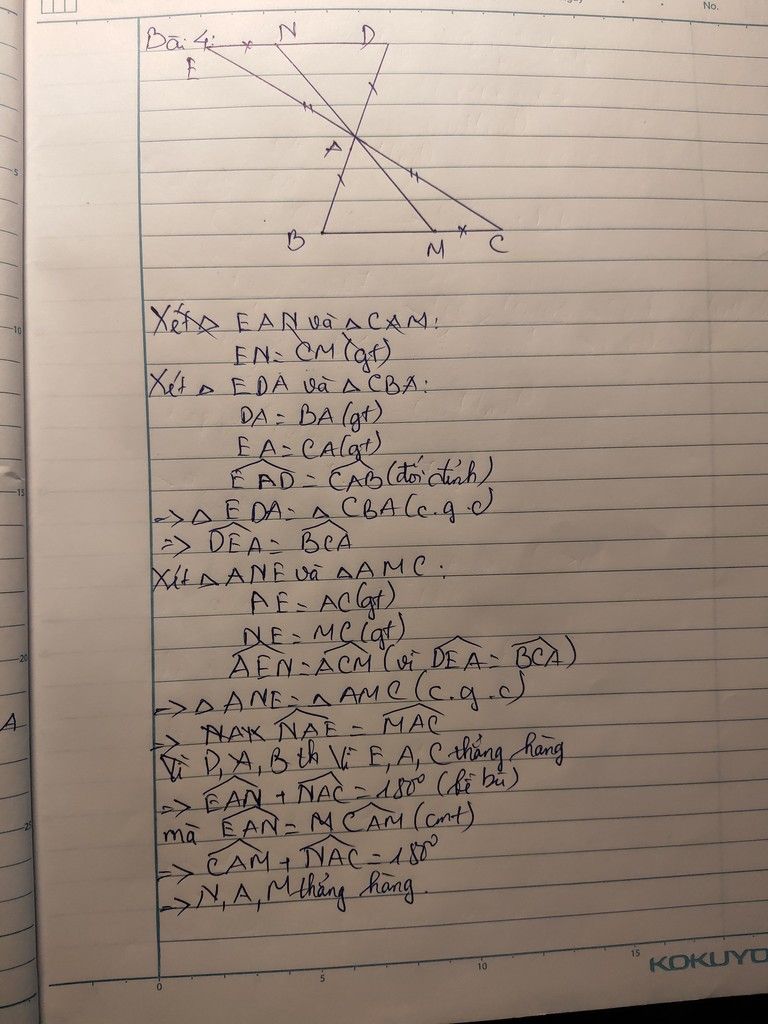 No.
Bài 4:
N
D
E
A
B
M
C
Xét △ EAN và △ CAM:
EN = CM (gt)
Xét △ EDA và △ CBA:
DA = BA (gt)
EA = CA (gt)
EAD = CAB (đối đỉnh)
=> △ EDA = △ CBA (c.g.c)
=> DEA = BCA
Xét △ ANE và △ AMC:
AE = AC (gt)
NE = MC (gt)
AEN = ACM (vì DEA = BCA)
=> △ ANE = △ AMC (c.g.c)
=> NAE = MAC
Vì D, A, B th Vì E, A, C thẳng hàng
=> EAN + NAC = 180° (kề bù)
mà EAN = CAM (cmt)
=> CAM + NAC = 180°
=> N, A, M thẳng hàng.
A
5
10
15
20
25
0
5
10
15
KOKUYO